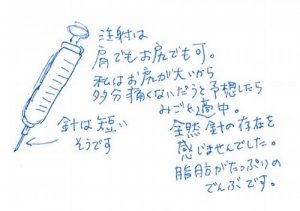 注射は
肩でもお尻でも可。
私はお尻が大いから
多分痛くないだろうと予想したら
みごと適中。
全然針の存在を
感じませんでした。
脂肪がたっぷりの
でんぶです。
針は短い
そうです